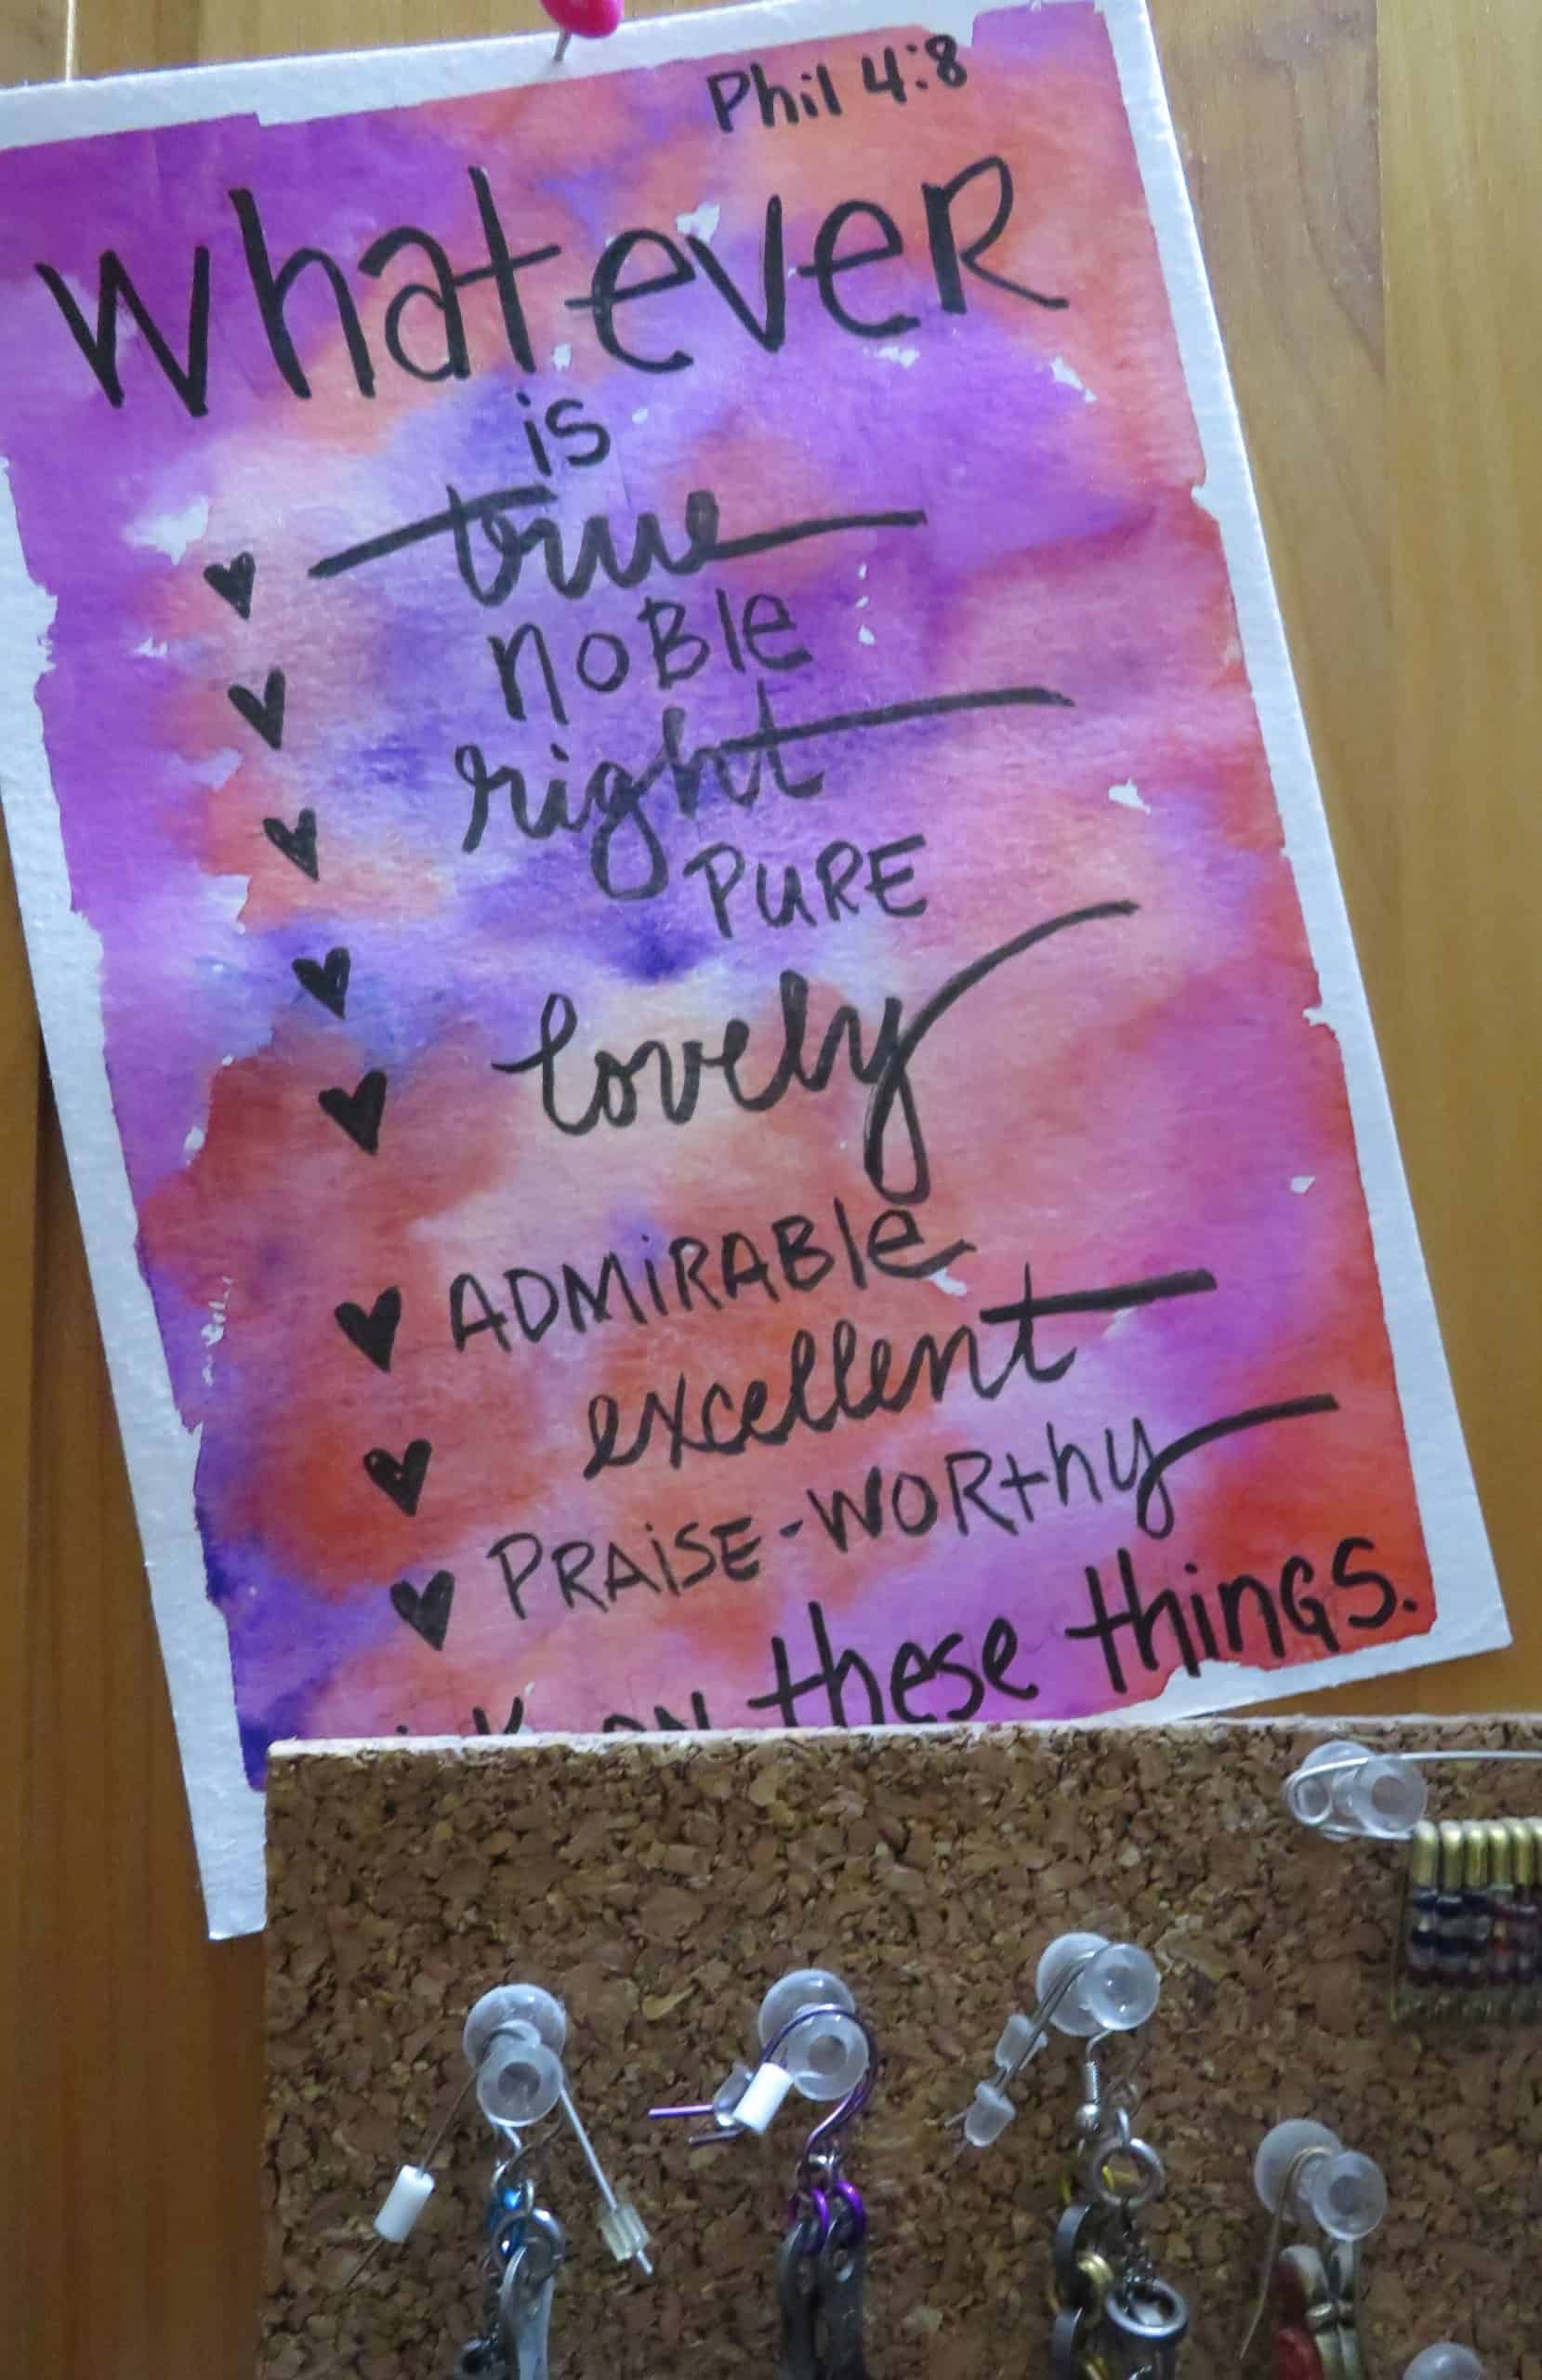 Phil 4:8
Whatever
is
true
noBle
right
PURE
lovely
ADMiRABle
excellent
PRAiSE-WORthy
on these thinGS.